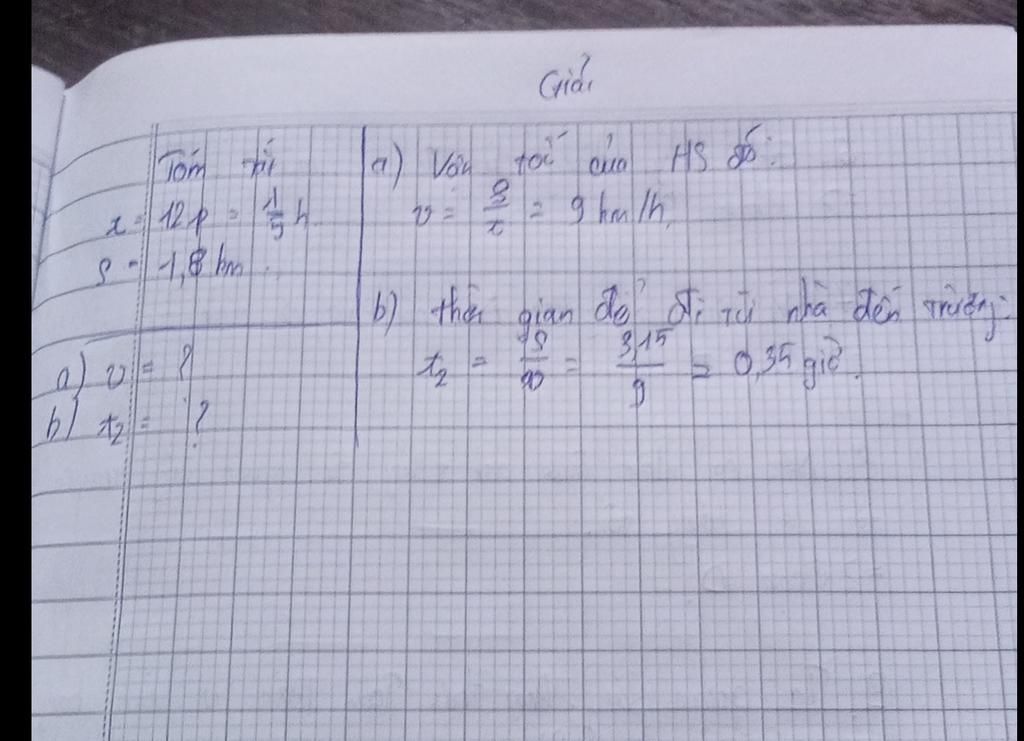 Giải
Tóm tắt
t = 12p = 1/5 h
S = 1,8 km
a) v = ?
b) t₂ = ?
a) Vận tốc của HS đó:
v = S/t = 9 km/h
b) thời gian để đi từ nhà đến trường:
t₂ = S/v = 3,15/9 = 0,35 giờ.